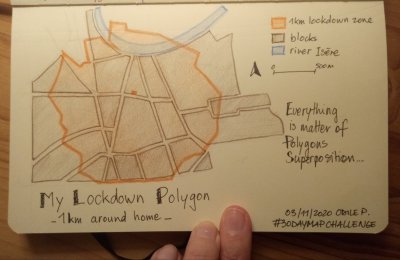 1km lockdown zone
blocks
river Isère
0 500m
Everything
is matter of
Polygons
Superposition...
My Lockdown Polygon
- 1km around home -
03/11/2020
#30DAYMAPCHALLENGE